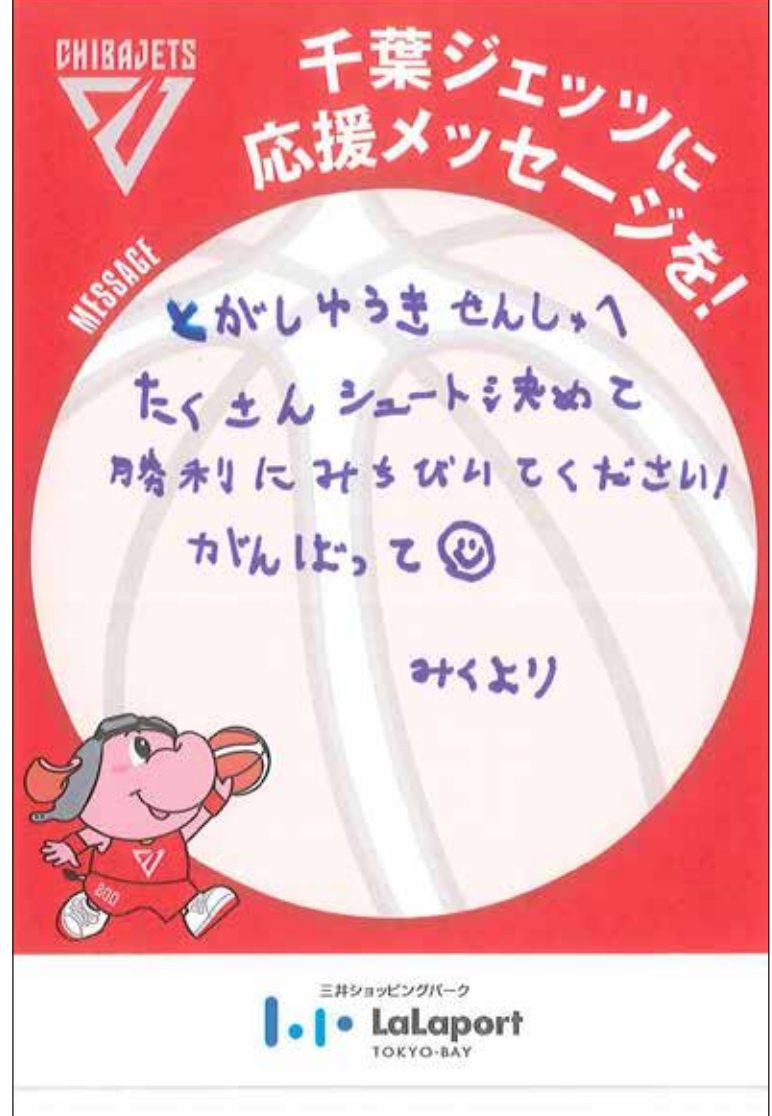 CHIBAJETS
千葉ジェッツに
応援メッセージを!
MESSAGE
とがしゆうき せんしゅへ
たくさん シュートを決めて
勝利に みちびいてください!
がんばって
みくより
800
三井ショッピングパーク
LaLaport
TOKYO-BAY